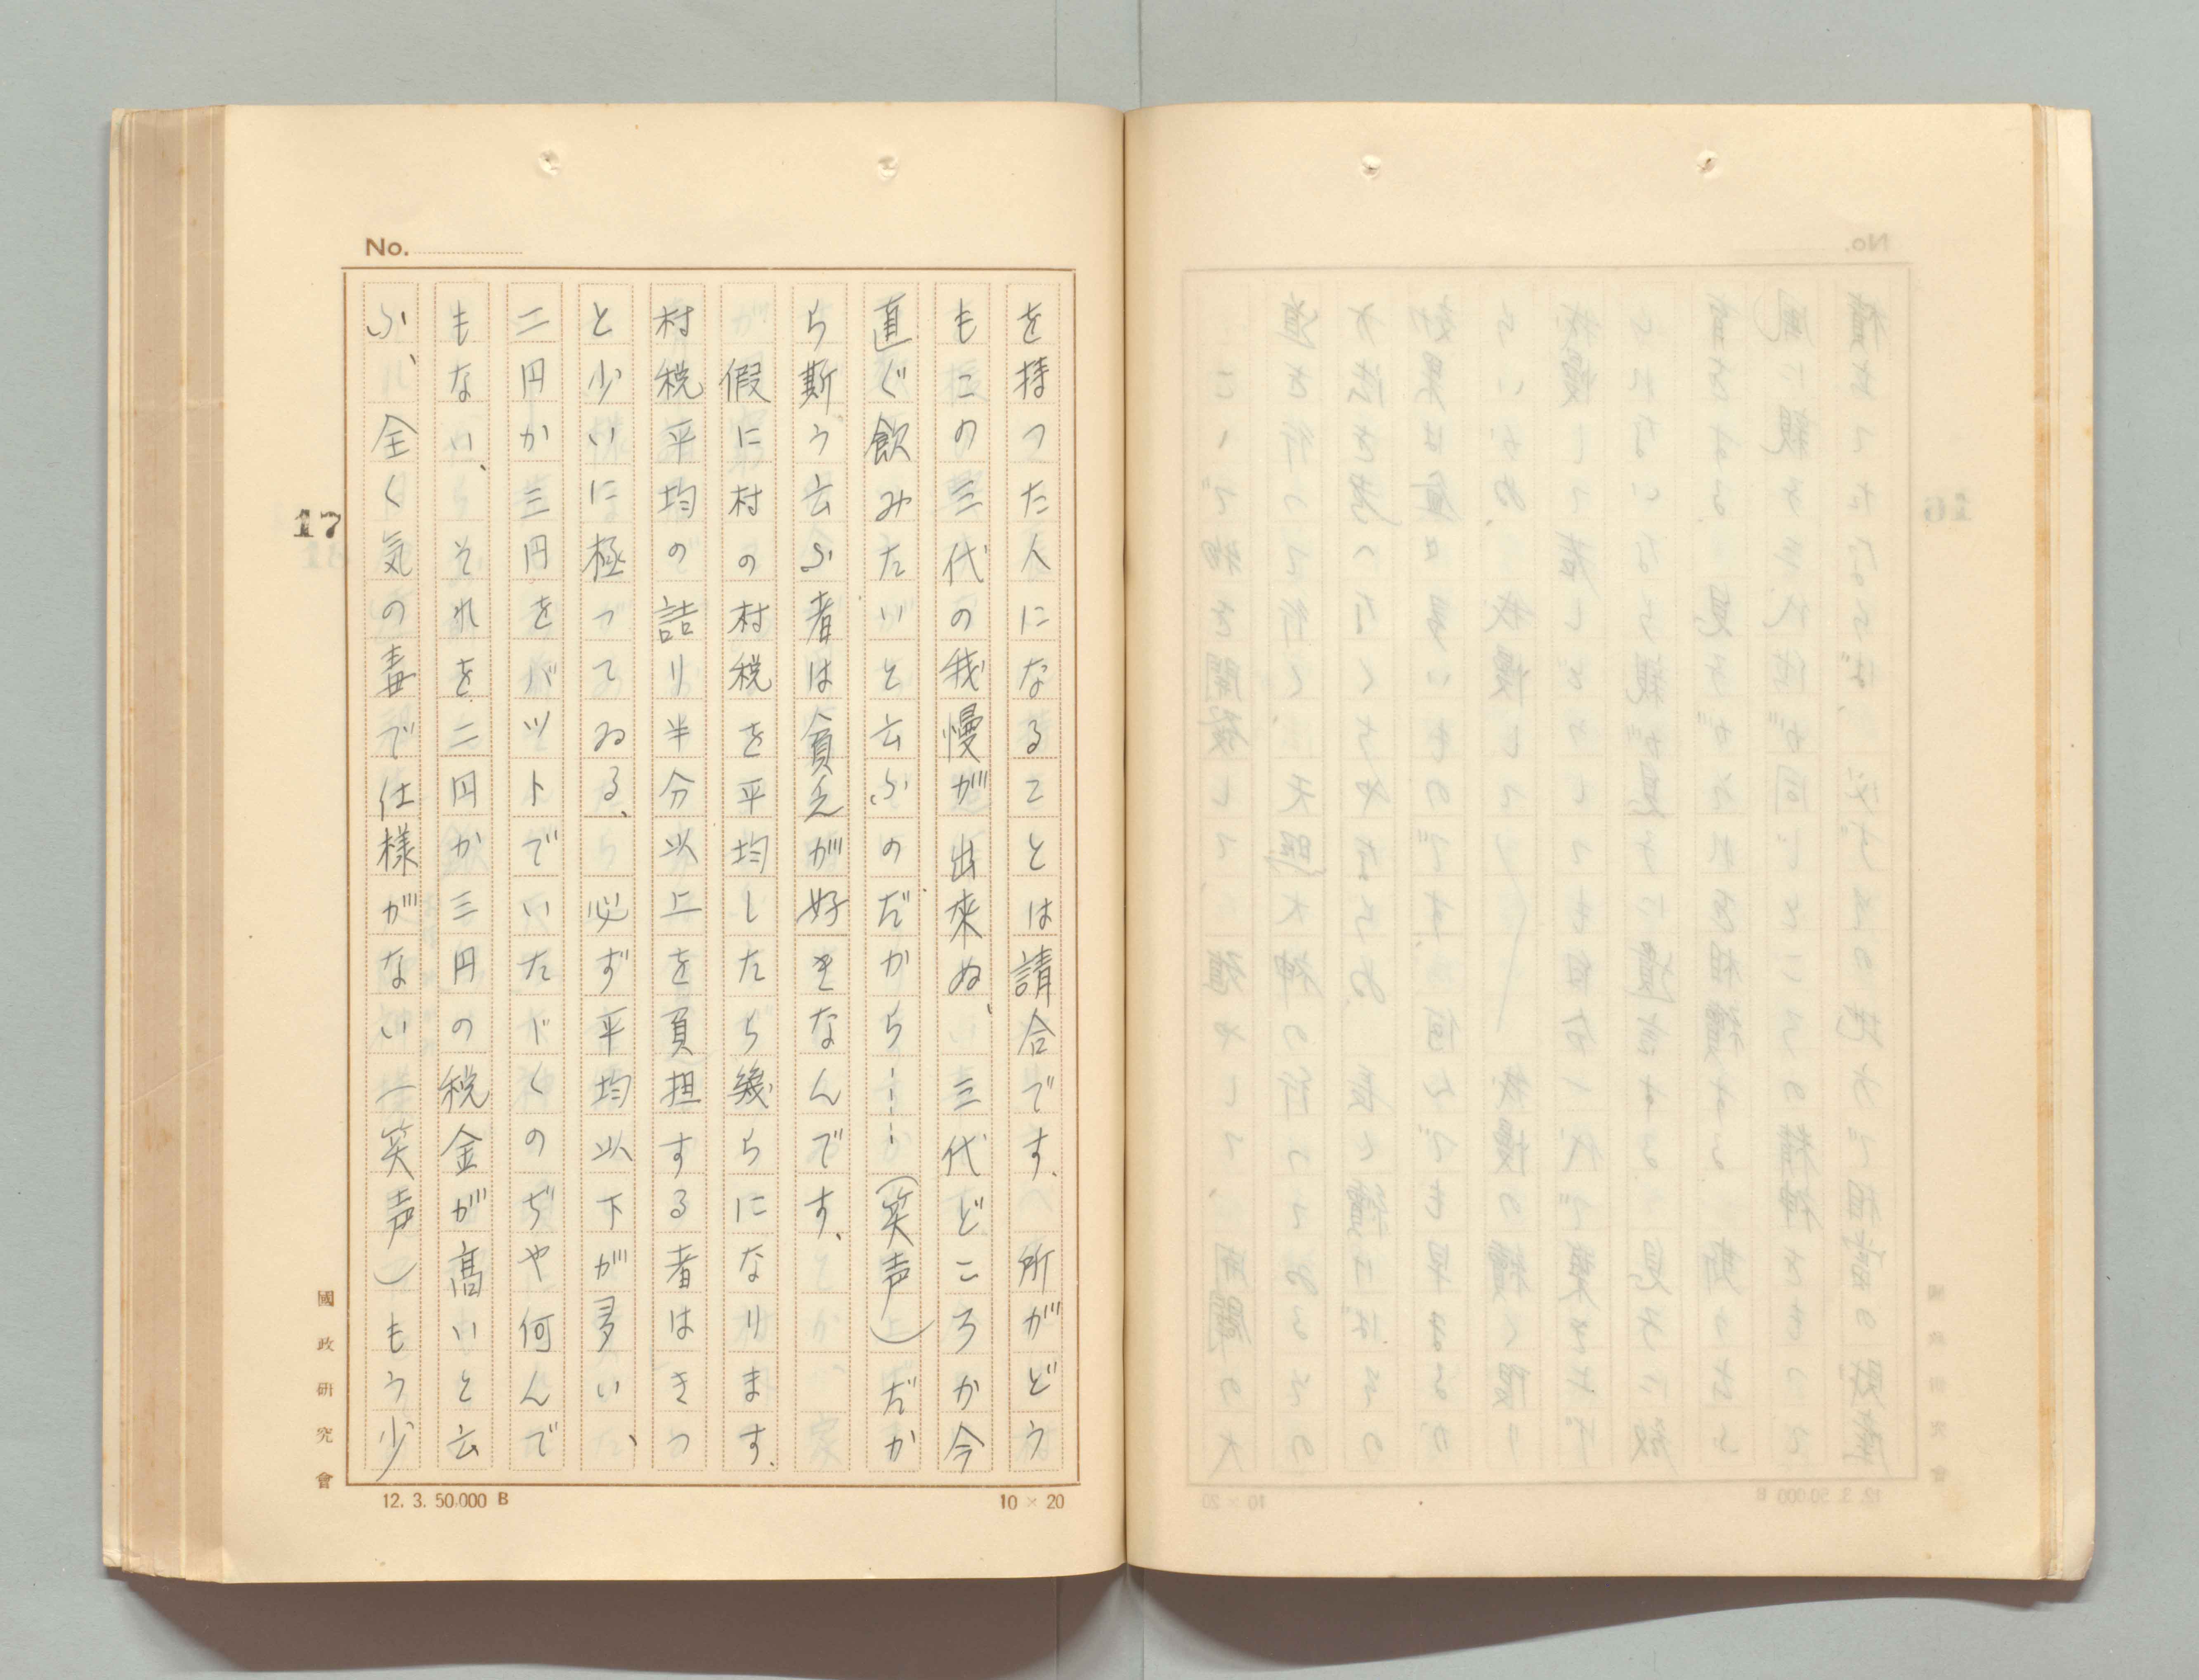 No.
を持つた人になることは請合です、所がどう
もこの三代の我慢が出来ぬ、三代どころか今
直ぐ飲みたいと云ふのだから----(笑声)だか
ら斯う云ふ者は貧乏が好きなんです、
假に村の村税を平均したら幾らになります、
村税平均の詰り半分以上を負担する者はきつ
と少いに極つてゐる、必ず平均以下が多い、
二円か三円をバツトでいたゞくのぢや何んで
もない、それを二円か三円の税金が高いと云
ふ、全く気の毒で仕様がない(笑声)もう少
17
國政研究會
12. 3. 50,000 B
10 × 20